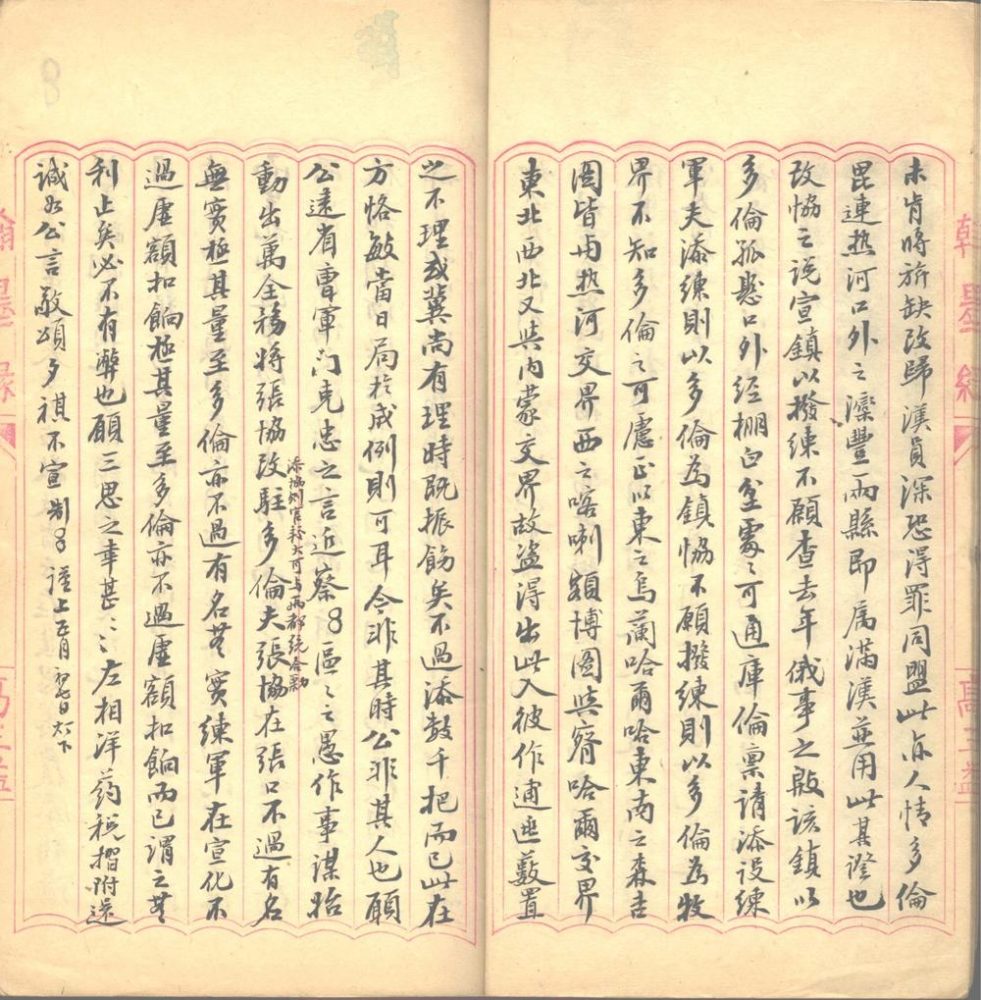 未肯將旂缺改歸漢員深恐得罪同盟此亦人情多倫
毘連熱河口外之灤豐兩縣即屬滿漢並用此其證也
改協之說宣鎮以撥練不願查去年俄事之殷該鎮以
多倫孤懸口外經棚白岔處〻可通庫倫稟請添設練
軍夫添練則以多倫為鎮協不願撥練則以多倫為牧
界不知多倫之可慮正以東之烏蘭哈爾哈東南之森吉
圖皆與熱河交界西之喀喇額博圖與察哈爾交界
東北西北又與內蒙交界故盜得出此入彼作逋逃藪置
之不理或冀尚有理時既振飭矣不過添數千把而已此在
方恪敏當日局於成例則可耳今非其時公非其人也願
公遠省曹軍門克忠之言近察 區〻之愚作事謀始
動出萬全務將張協改駐多倫夫張協在張口不過有名
添協則官務大可與兩都統合勦
無實極其量至多倫亦不過有名無實練軍在宣化不
過虛額扣餉極其量至多倫亦不過虛額扣餉而已謂之無
利止矣必不有弊也願三思之幸甚〻〻左相洋葯稅摺附還
誠如公言敬頌夕祺不宣制 謹上正月初七日灯下
翰墨緣